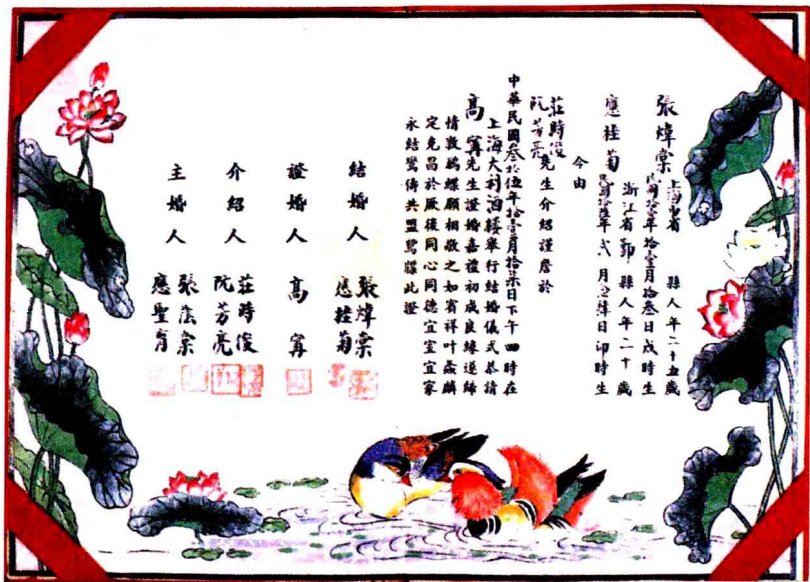 張煒棠 上海市省 縣人年二十五歲
民國拾壹年拾壹月拾叁日戌時生
應桂菊 浙江省鄞縣人年二十歲
月 日卯時生
今由
莊時俊
阮芳亮 先生介紹謹詹於
中華民國叁拾伍年拾壹月拾柒日下午四時在
上海大利酒樓舉行結婚儀式恭請
高 先生證婚嘉禮初成良緣遂締
情敦鶼鰈願相敬之如賓祥叶螽麟
定克昌於厥後同心同德宜室宜家
永結鸞儔共盟鴛牒此證
結婚人 張煒棠
應桂菊
證婚人 高
介紹人 莊時俊
阮芳亮
主婚人 張蔭棠
應聖育